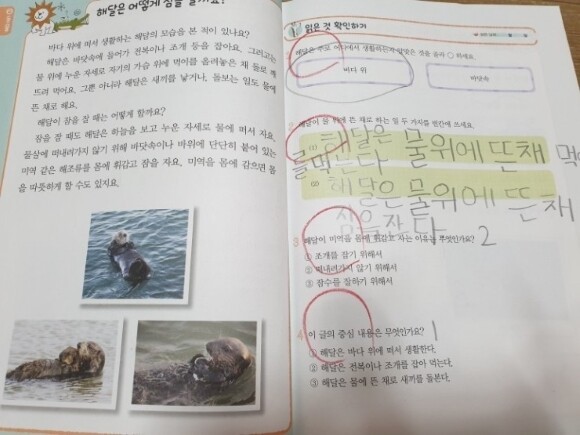 해달은 어떻게 잠을 잘까요?
바다 위에 떠서 생활하는 해달의 모습을 본 적이 있나요?
해달은 바닷속에 들어가 전복이나 조개 등을 잡아요. 그러고는
물 위에 누운 자세로 자기의 가슴 위에 먹이를 올려놓은 채 돌로 깨
뜨려 먹어요. 그뿐 아니라 해달은 새끼를 낳거나, 돌보는 일도 물에
뜬 채로 해요.
해달이 잠을 잘 때는 어떻게 할까요?
잠을 잘 때도 해달은 하늘을 보고 누운 자세로 물에 떠서 자요.
물살에 떠내려가지 않기 위해 바닷속이나 바위에 단단히 붙어 있는
미역 같은 해조류를 몸에 휘감고 잠을 자요. 미역을 몸에 감으면 몸
을 따뜻하게 할 수도 있지요.
읽은 것 확인하기
해달은 주로 어디에서 생활하는지 알맞은 것을 골라 ○ 하세요.
바다 위
바닷속
해달이 물 위에 뜬 채로 하는 일 두 가지를 빈칸에 쓰세요.
(1) 해달은 물위에 뜬채 먹이
를먹는다
(2) 해달은물위에 뜬채
잠을잔다
3 해달이 미역을 몸에 휘감고 자는 이유는 무엇인가요? 2
① 조개를 잡기 위해서
② 떠내려가지 않기 위해서
③ 잠수를 잘하기 위해서
4 이 글의 중심 내용은 무엇인가요? 1
① 해달은 바다 위에 떠서 생활한다.
② 해달은 전복이나 조개를 잡아 먹는다.
③ 해달은 물에 뜬 채로 새끼를 돌본다.